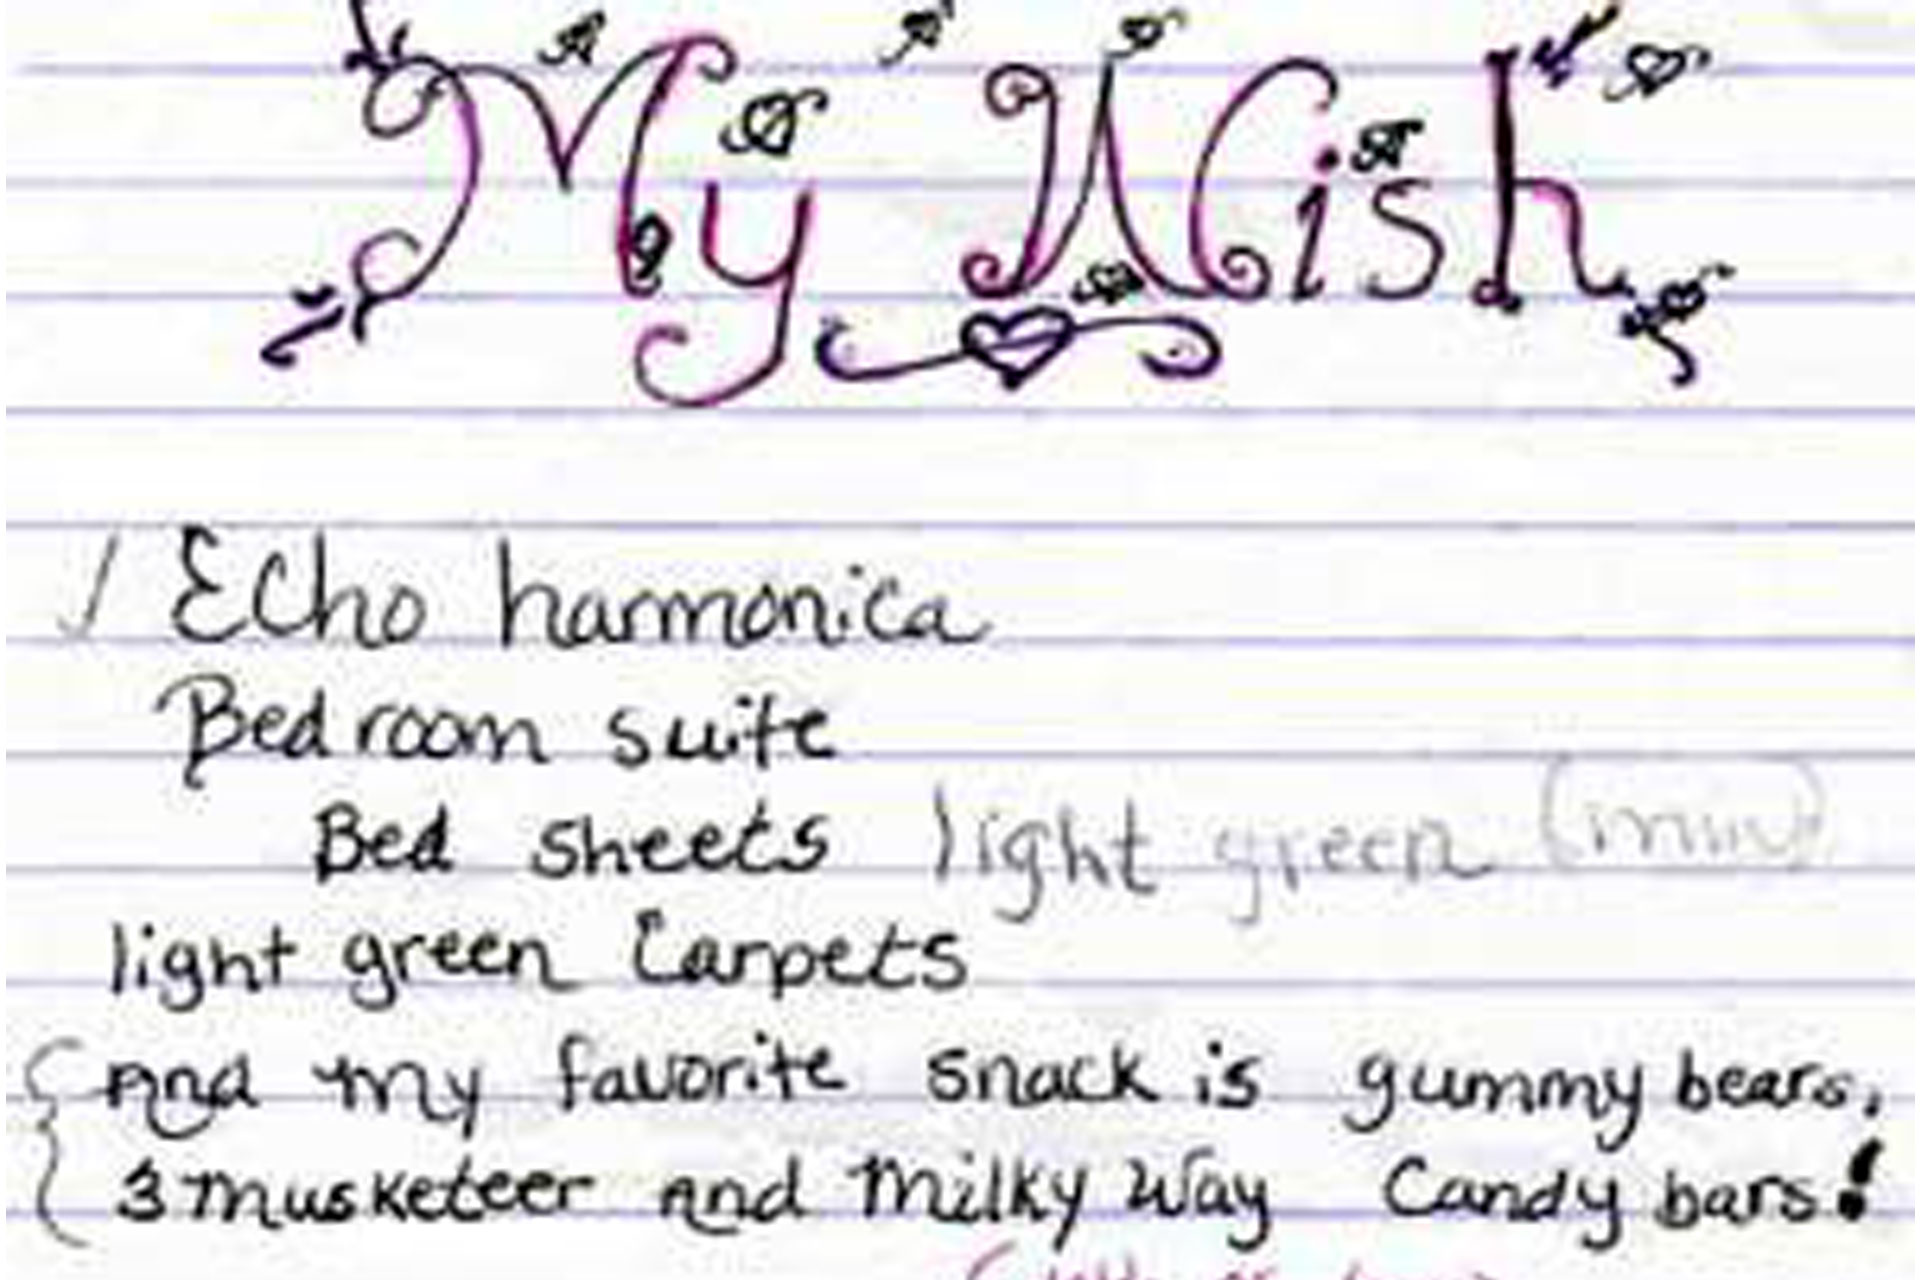 My Wish
Echo harmonica
Bedroom suite
Bed sheets light green
light green Carpets
And my favorite snack is gummy bears,
3 musketeer and Milky Way Candy bars!